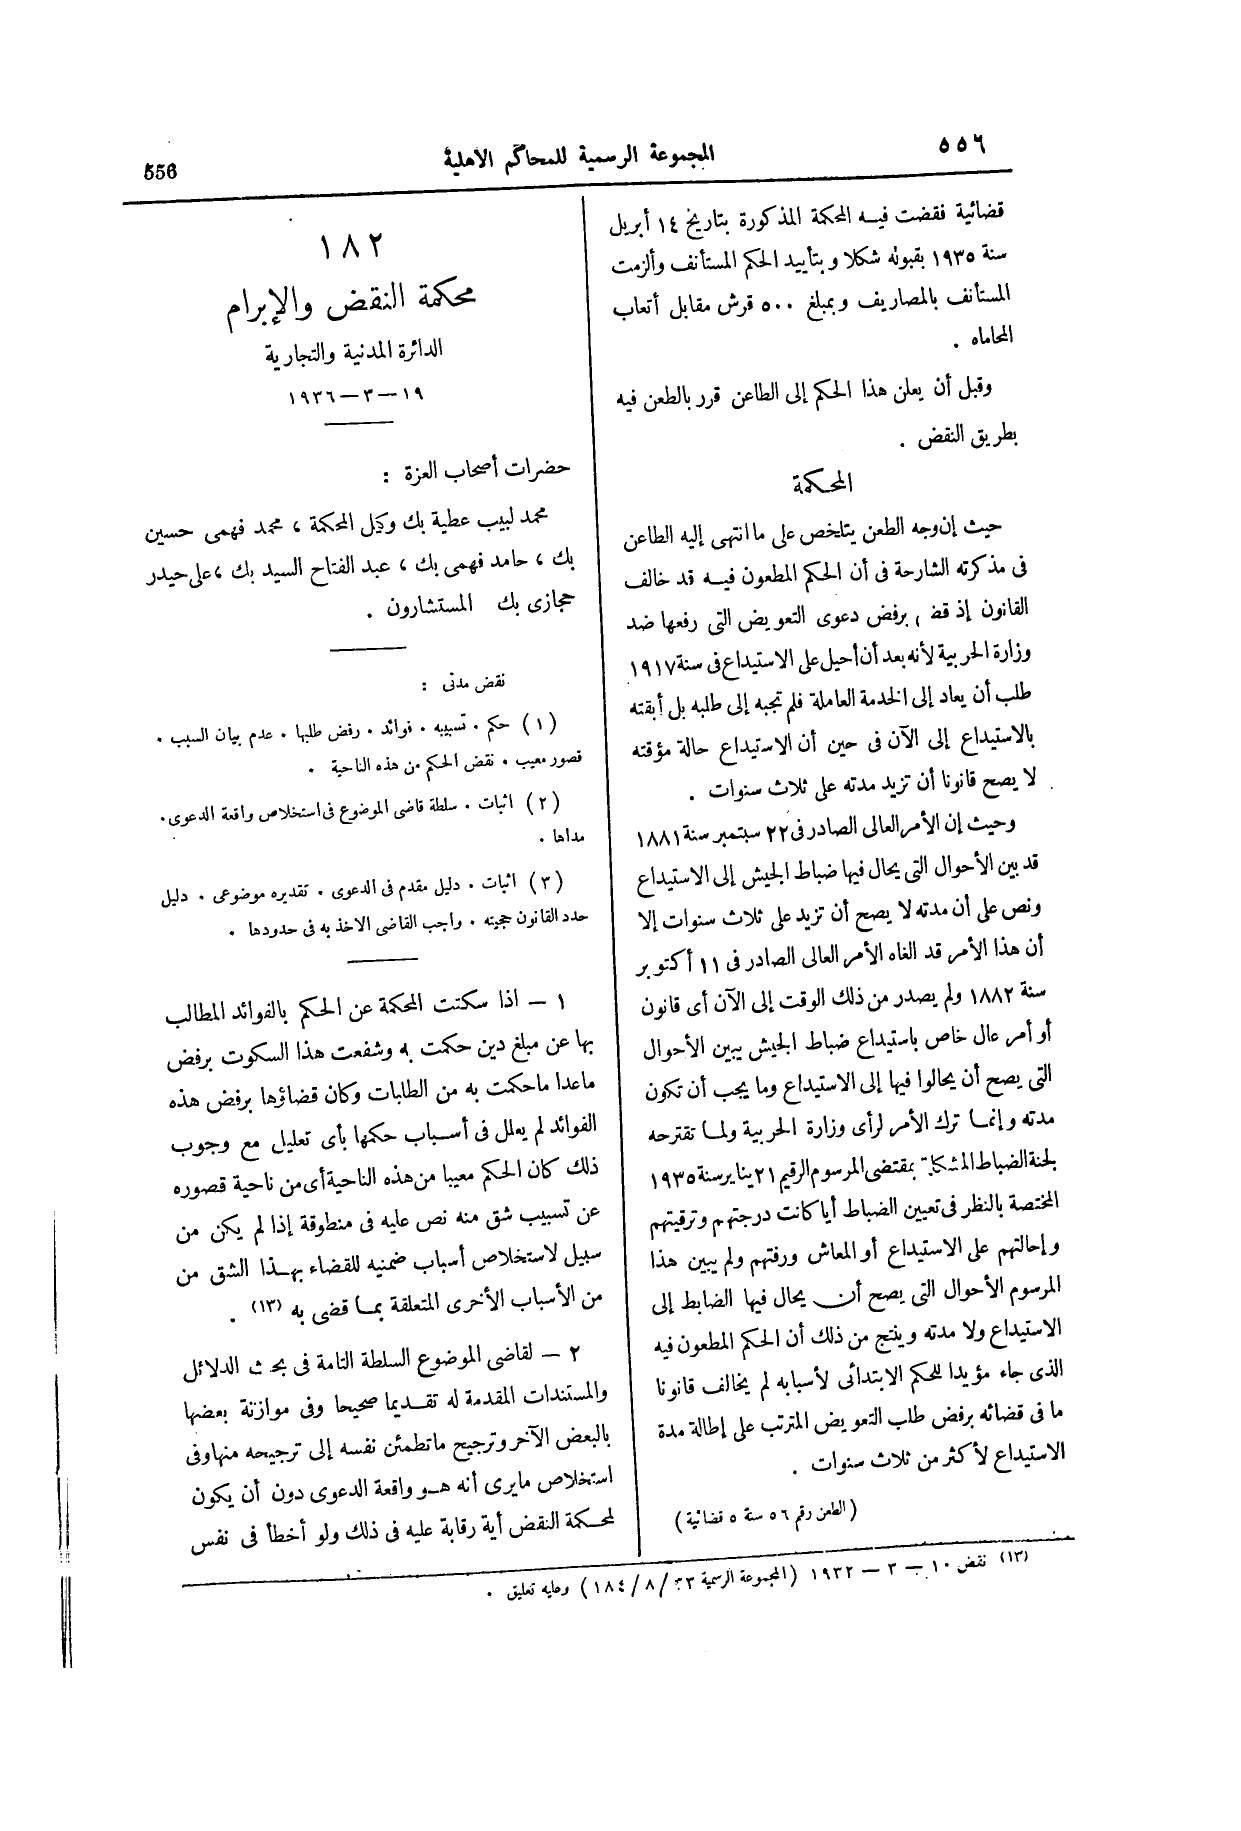 ٥٥٦
المجموعة الرسمية للمحاكم الأهلية
556
قضائية فقضت فيه المحكمة المذكورة بتاريخ ١٤ أبريل
سنة ١٩٣٥ بقبوله شكلا وبتأييد الحكم المستأنف وألزمت
المستأنف بالمصاريف وبمبلغ ٥٠٠ قرش مقابل أتعاب
المحاماه .
وقبل أن يعلن هذا الحكم إلى الطاعن قرر بالطعن فيه
بطريق النقض .
المحكمة
حيث إن وجه الطعن يتلخص على ما انتهى إليه الطاعن
فى مذكرته الشارحة فى أن الحكم المطعون فيه قد خالف
القانون إذ قضى برفض دعوى التعويض التى رفعها ضد
وزارة الحربية لأنه بعد أن أحيل على الاستيداع فى سنة ١٩١٧
طلب أن يعاد إلى الخدمة العاملة فلم تجبه إلى طلبه بل أبقته
بالاستيداع إلى الآن فى حين أن الاستيداع حالة مؤقته
لا يصح قانونا أن تزيد مدته على ثلاث سنوات .
وحيث إن الأمر العالى الصادر فى ٢٢ سبتمبر سنة ١٨٨١
قد بين الأحوال التى يحال فيها ضباط الجيش إلى الاستيداع
ونص على أن مدته لا يصح أن تزيد على ثلاث سنوات إلا
أن هذا الأمر قد الغاه الأمر العالى الصادر فى ١١ أكتوبر
سنة ١٨٨٢ ولم يصدر من ذلك الوقت إلى الآن أى قانون
أو أمر عال خاص باستيداع ضباط الجيش يبين الأحوال
التى يصح أن يحالوا فيها إلى الاستيداع وما يجب أن تكون
مدته وإنما ترك الأمر لرأى وزارة الحربية ولما تقترحه
لجنة الضباط المشكلة بمقتضى المرسوم الرقيم ٢١ يناير سنة ١٩٣٥
المختصة بالنظر فى تعيين الضباط أيا كانت درجتهم وترقيتهم
وإحالتهم على الاستيداع أو المعاش ورفتهم ولم يبين هذا
المرسوم الأحوال التى يصح أن يحال فيها الضابط إلى
الاستيداع ولا مدته وينتج من ذلك أن الحكم المطعون فيه
الذى جاء مؤيدا للحكم الابتدائى لأسبابه لم يخالف قانونا
ما فى قضائه برفض طلب التعويض المترتب على إطالة مدة
الاستيداع لأكثر من ثلاث سنوات .
(الطعن رقم ٥٦ سنة ٥ قضائية)
١٨٢
محكمة النقض والإبرام
الدائرة المدنية والتجارية
١٩ — ٣ — ١٩٣٦
حضرات أصحاب العزة :
محمد لبيب عطية بك وكيل المحكمة ، محمد فهمى حسين
بك ، حامد فهمى بك ، عبد الفتاح السيد بك ، على حيدر
حجازى بك المستشارون .
نقض مدنى :
(١) حكم . تسبيبه . فوائد . رفض طلبها . عدم بيان السبب .
قصور معيب . نقض الحكم من هذه الناحية .
(٢) اثبات . سلطة قاضى الموضوع فى استخلاص واقعة الدعوى .
مداها .
(٣) اثبات . دليل مقدم فى الدعوى . تقديره موضوعى . دليل
حدد القانون حجيته . واجب القاضى الاخذ به فى حدودها .
١ — اذا سكتت المحكمة عن الحكم بالفوائد المطالب
بها عن مبلغ دين حكمت به وشفعت هذا السكوت برفض
ماعدا ماحكمت به من الطلبات وكان قضاؤها برفض هذه
الفوائد لم يعلل فى أسباب حكمها بأى تعليل مع وجوب
ذلك كان الحكم معيبا من هذه الناحية أى من ناحية قصوره
عن تسبيب شق منه نص عليه فى منطوقة إذا لم يكن من
سبيل لاستخلاص أسباب ضمنيه للقضاء بهذا الشق من
من الأسباب الأخرى المتعلقة بما قضى به (١٣) .
٢ — لقاضى الموضوع السلطة التامة فى بحث الدلائل
والمستندات المقدمة له تقديما صحيحا وفى موازنة بعضها
بالبعض الآخر وترجيح ماتطمئن نفسه إلى ترجيحه منها وفى
استخلاص مايرى أنه هو واقعة الدعوى دون أن يكون
لمحكمة النقض أية رقابة عليه فى ذلك ولو أخطأ فى نفس
(١٣) نقض ١٠ — ٣ — ١٩٣٢ (المجموعة الرسمية ٣٣/٨/١٨٤) وعليه تعليق .